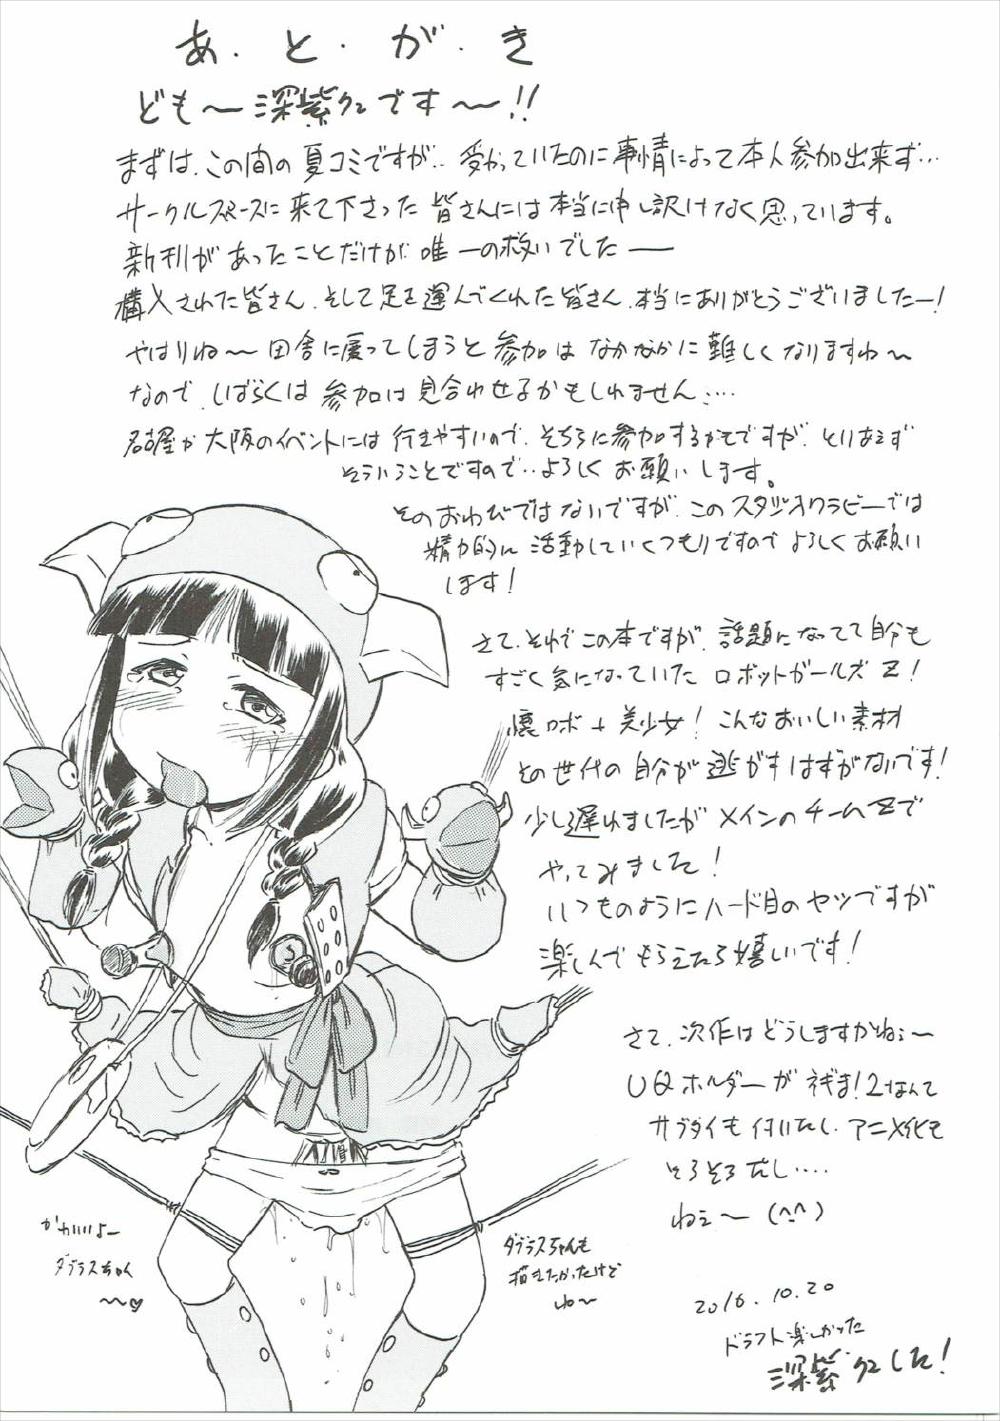 あ・と・が・き
ども〜深紫クニです〜!!
まずは、この間の夏コミですが、受かっていたのに事情によって本人参加出来ず…
サークルスペースに来て下さった皆さんには本当に申し訳けなく思っています。
新刊があったことだけが唯一の救いでした――
購入された皆さん、そして足を運んでくれた皆さん、本当にありがとうございましたー!
やはりね〜田舎に戻ってしまうと参加はなかなかに難しくなりますね〜
なので、しばらくは参加は見合わせるかもしれません….
名古屋か大阪のイベントには行きやすいので、そちらに参加するかもですが、とりあえず
そういうことですので‥よろしくお願いします。
そのおわびではないですが、このスタジオワラビーでは
精力的に活動していくつもりですのでよろしくお願い
します!
さて、それでこの本ですが、話題になってて自分も
すごく気になっていたロボットガールズZ!
懐ロボ+美少女!こんなおいしい素材
その世代の自分が逃がすはずがないです!
少し遅れましたがメインのチームZで
やってみました!
いつものようにハード目のヤツですが
楽しんでもらえたら嬉しいです!
さて、次作はどうしますかねぇ〜
UQホルダーがネギま!2なんて
サブタイも付いたし、アニメ化も
そろそろだし….
ねぇ〜(^^)
かわいいよー
ダブラスちゃん
〜〜♡
ダブラスちゃんも
描きたかったけど
ね〜
2016.10.20
ドラフト楽しかった
深紫クニでした!